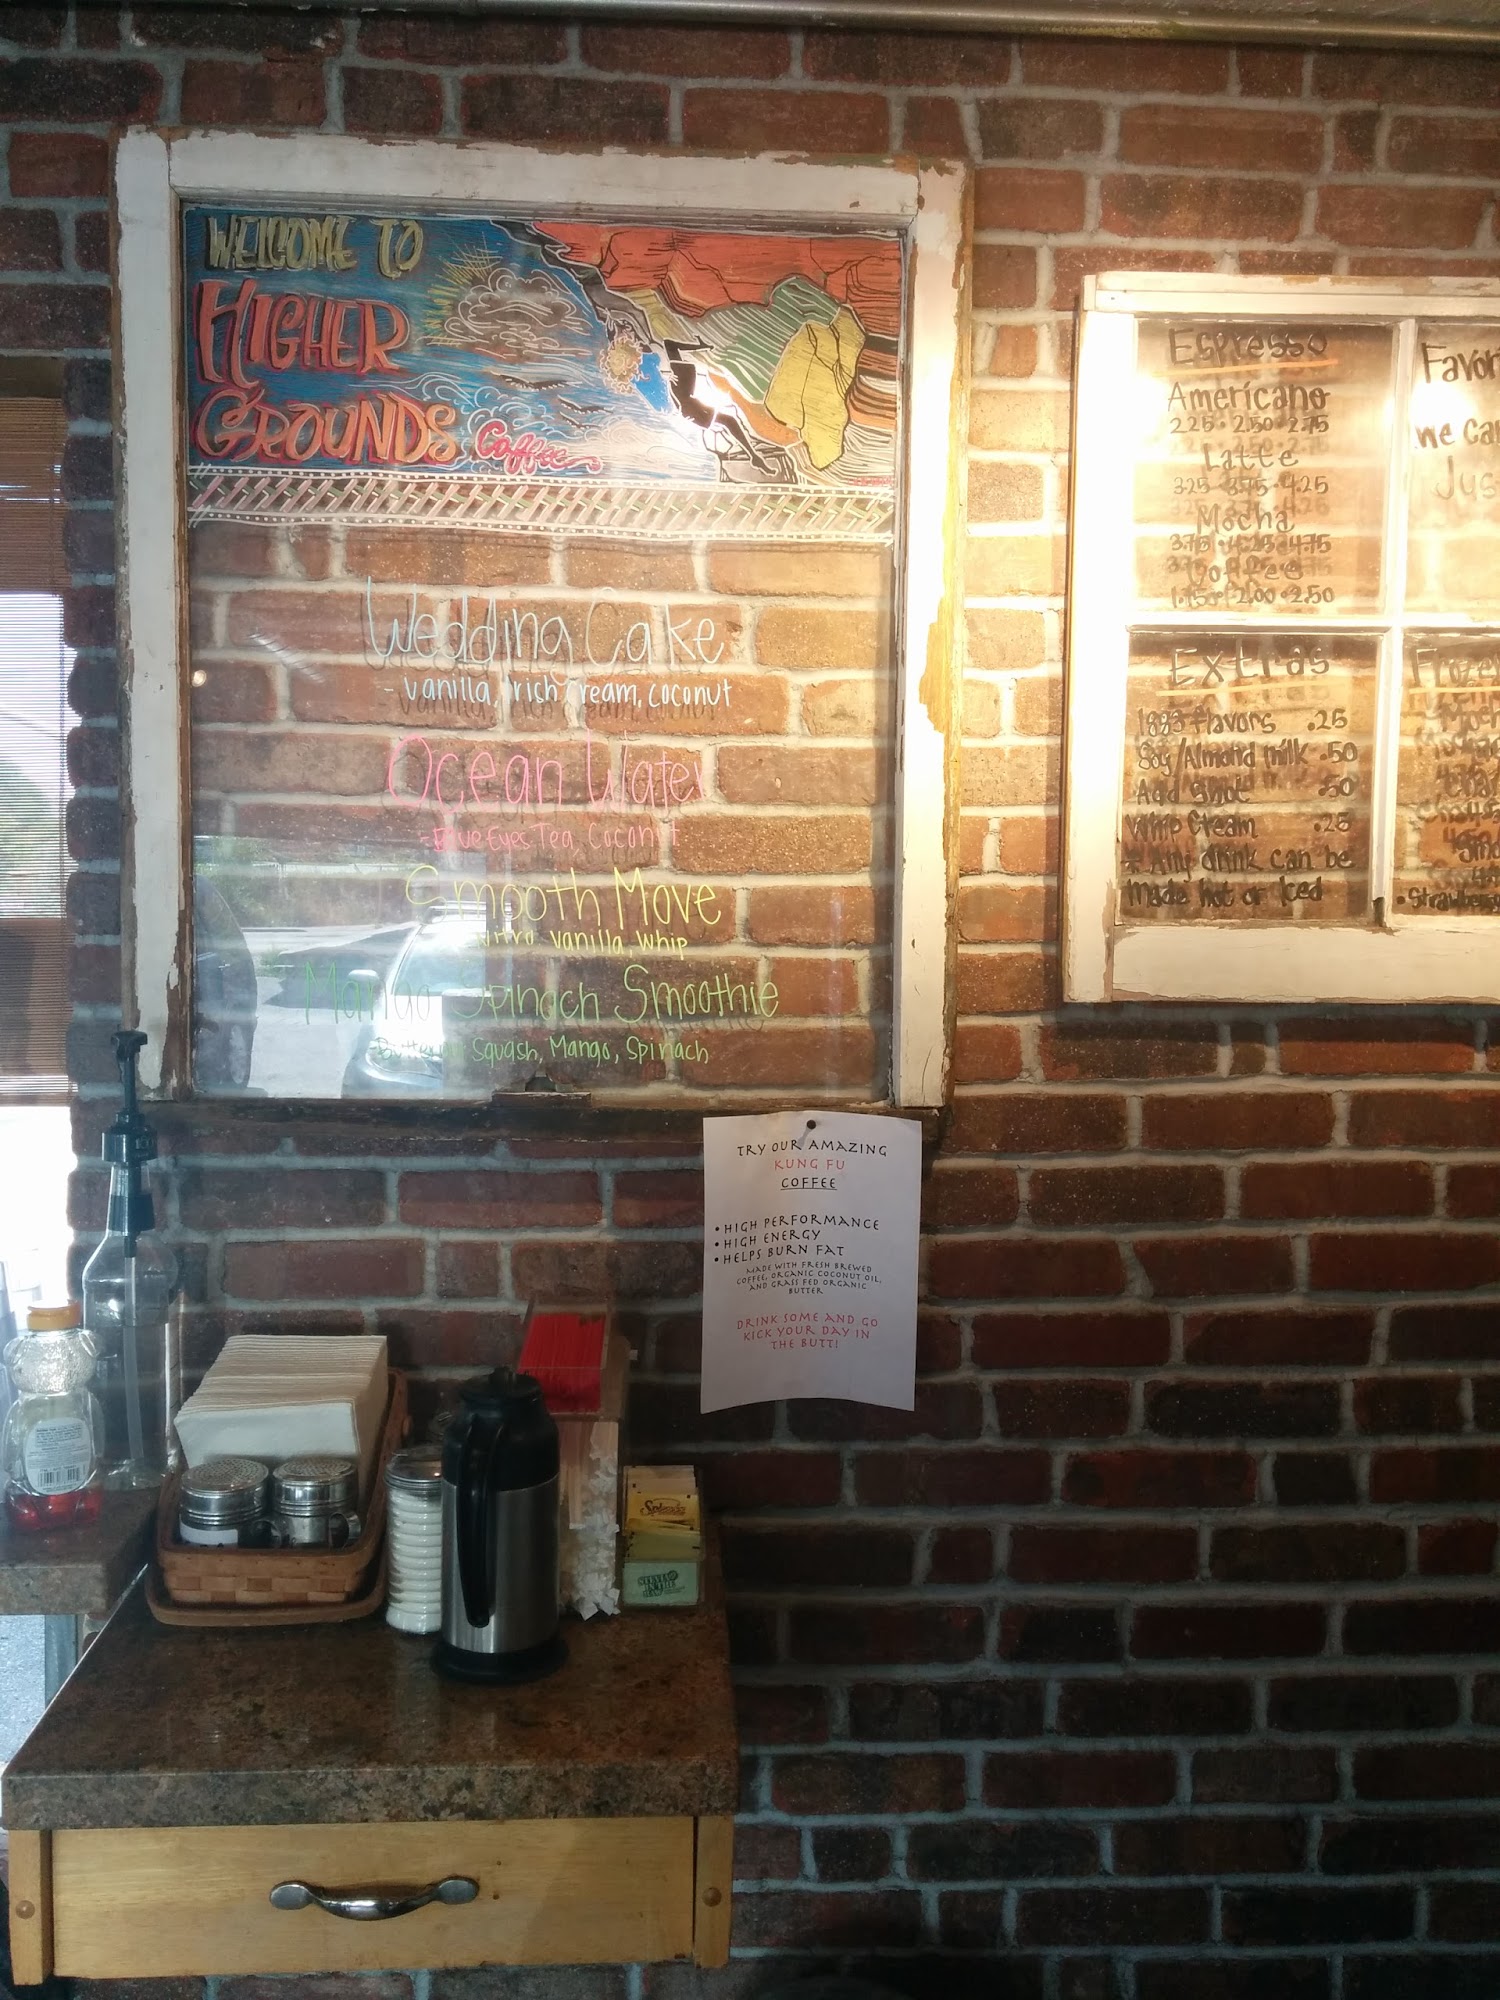 WELCOME TO
HIGHER
GROUNDS Coffee
Wedding Cake
- Vanilla, Irish Cream, Coconut
Ocean Water
- Blue Eyes Tea, Coconut
Smooth Move
Nitro Vanilla, Whip
Mango Spinach Smoothie
Squash, Mango, Spinach
Espresso
Americano
2.25 • 2.50 • 2.75
Latte
3.25 • 3.75 • 4.25
Mocha
3.75 • 4.25 • 4.75
Coffee
1.75 • 2.00 • 2.50
we
Extras
1883 Flavors .25
Soy/Almond Milk .50
Add Shot .50
Whip Cream .25
* Any drink can be
made hot or iced
TRY OUR AMAZING
KUNG FU
COFFEE
• HIGH PERFORMANCE
• HIGH ENERGY
• HELPS BURN FAT
MADE WITH FRESH BREWED
COFFEE, ORGANIC COCONUT OIL,
AND GRASS FED ORGANIC
BUTTER
DRINK SOME AND GO
KICK YOUR DAY IN
THE BUTT!
Splenda